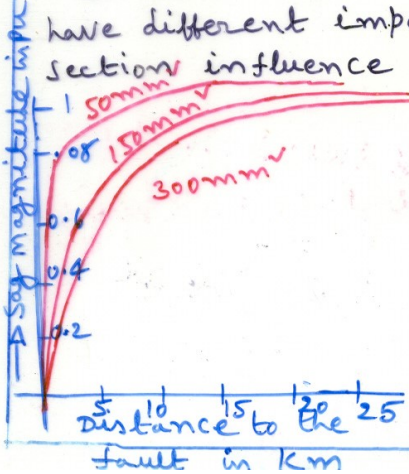 have different imp
section influence
Sag magnitude inpu
1
50mm²
.08
150mm²
300mm²
0.6
0.4
0.2
5 10 15 20 25
Distance to the
fault in Km